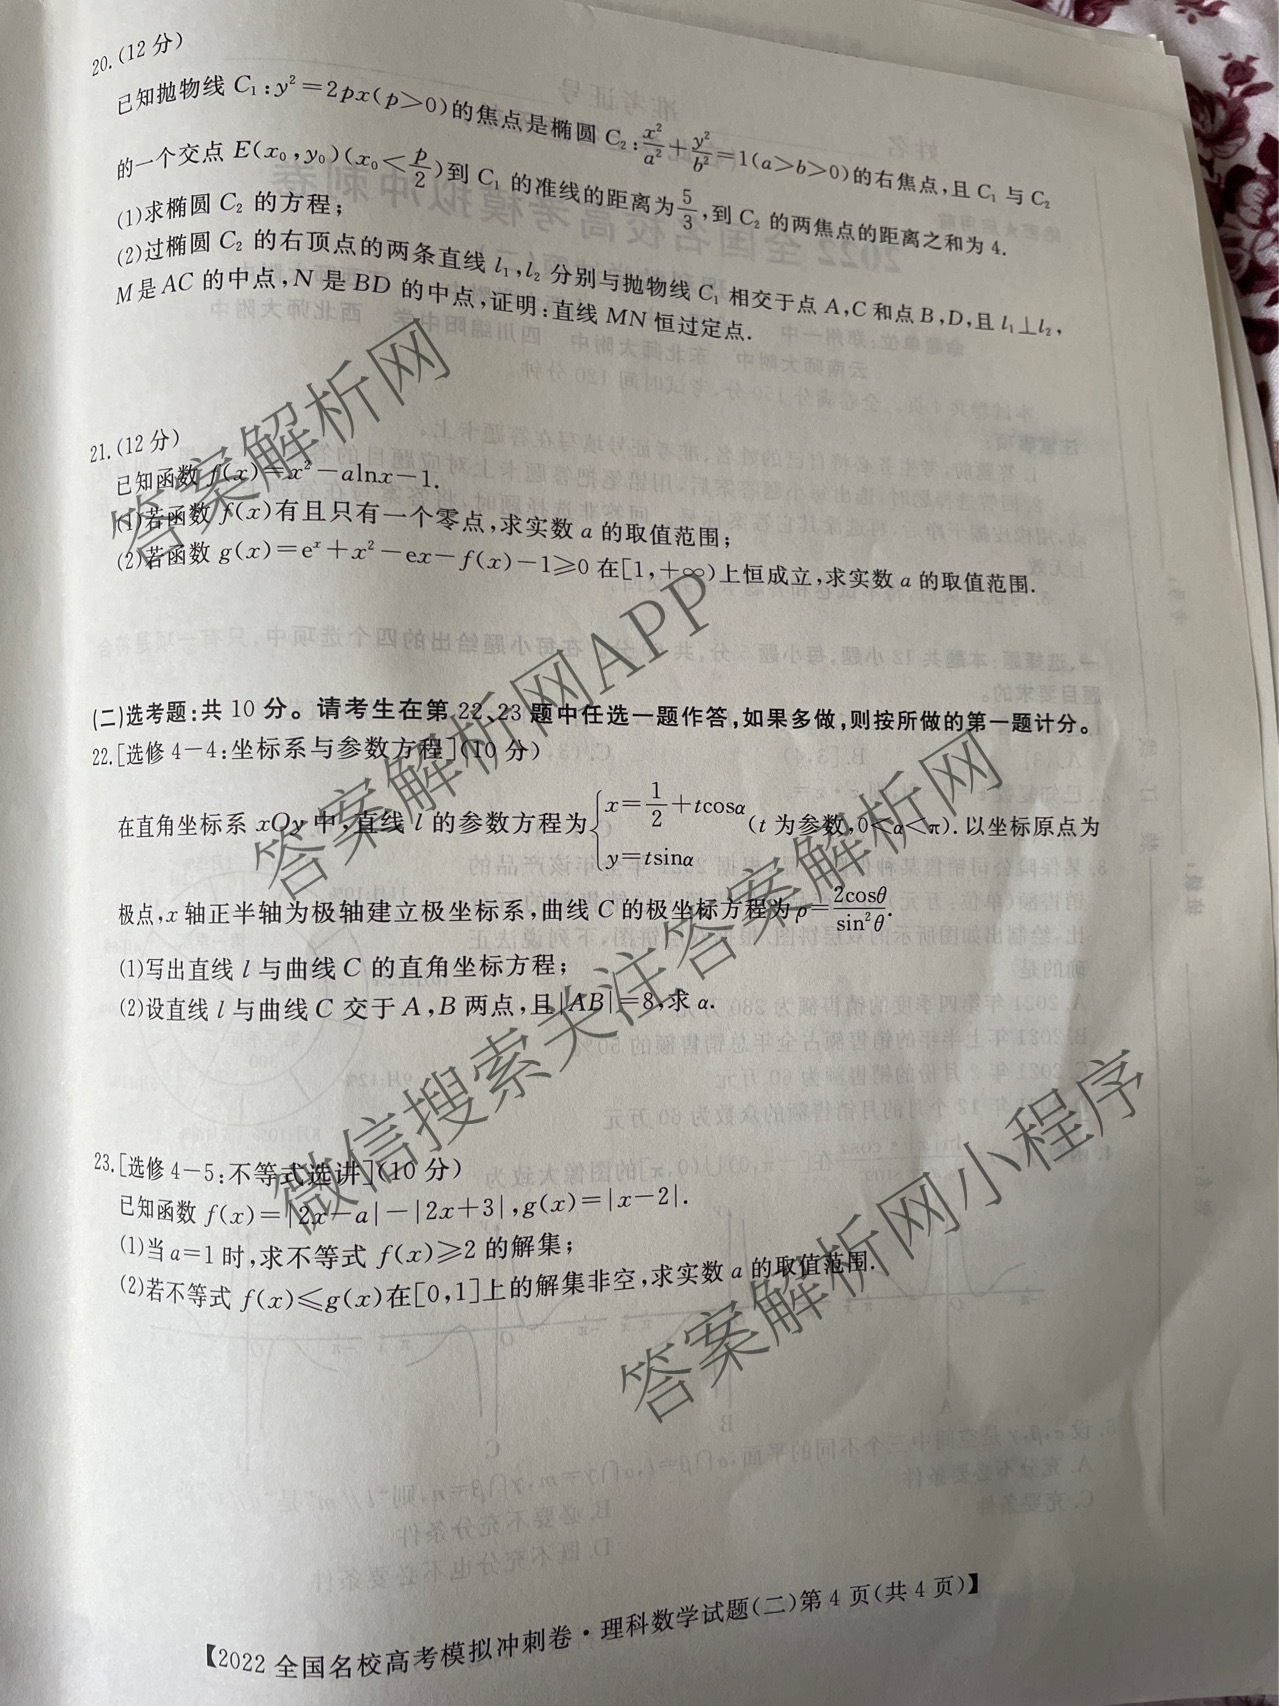 20.(12分)
已知抛物线 C₁:y²=2px(p>0)的焦点是椭圆 C₂:x²/a²+y²/b²=1(a>b>0)的右焦点,且 C₁ 与 C₂
的一个交点 E(x₀,y₀)(x₀<p/2)到 C₁ 的准线的距离为5/3,到 C₂ 的两焦点的距离之和为 4.
(1)求椭圆 C₂ 的方程;
(2)过椭圆 C₂ 的右顶点的两条直线 l₁,l₂ 分别与抛物线 C₁ 相交于点 A,C 和点 B,D,且 l₁⊥l₂,
M 是 AC 的中点,N 是 BD 的中点,证明:直线 MN 恒过定点.
21.(12分)
已知函数 f(x)=x²-alnx-1.
(1)若函数 f(x)有且只有一个零点,求实数 a 的取值范围;
(2)若函数 g(x)=eˣ+x²-ex-f(x)-1≥0 在[1,+∞)上恒成立,求实数 a 的取值范围.
(二)选考题:共 10 分。请考生在第 22、23 题中任选一题作答,如果多做,则按所做的第一题计分。
22.[选修 4-4:坐标系与参数方程](10 分)
在直角坐标系 xOy 中,直线 l 的参数方程为{x=1/2+tcosα y=tsinα (t 为参数,0<α<π).以坐标原点为
极点,x 轴正半轴为极轴建立极坐标系,曲线 C 的极坐标方程为 ρ=2cosθ/sin²θ.
(1)写出直线 l 与曲线 C 的直角坐标方程;
(2)设直线 l 与曲线 C 交于 A,B 两点,且|AB|=8,求 α.
23.[选修 4-5:不等式选讲](10 分)
已知函数 f(x)=|2x-a|-|2x+3|,g(x)=|x-2|.
(1)当 a=1 时,求不等式 f(x)≥2 的解集;
(2)若不等式 f(x)≤g(x)在[0,1]上的解集非空,求实数 a 的取值范围.
【2022 全国名校高考模拟冲刺卷·理科数学试题(二)第 4 页(共 4 页)】
答案解析网
答案解析网APP
微信搜索关注答案解析网
答案解析网小程序